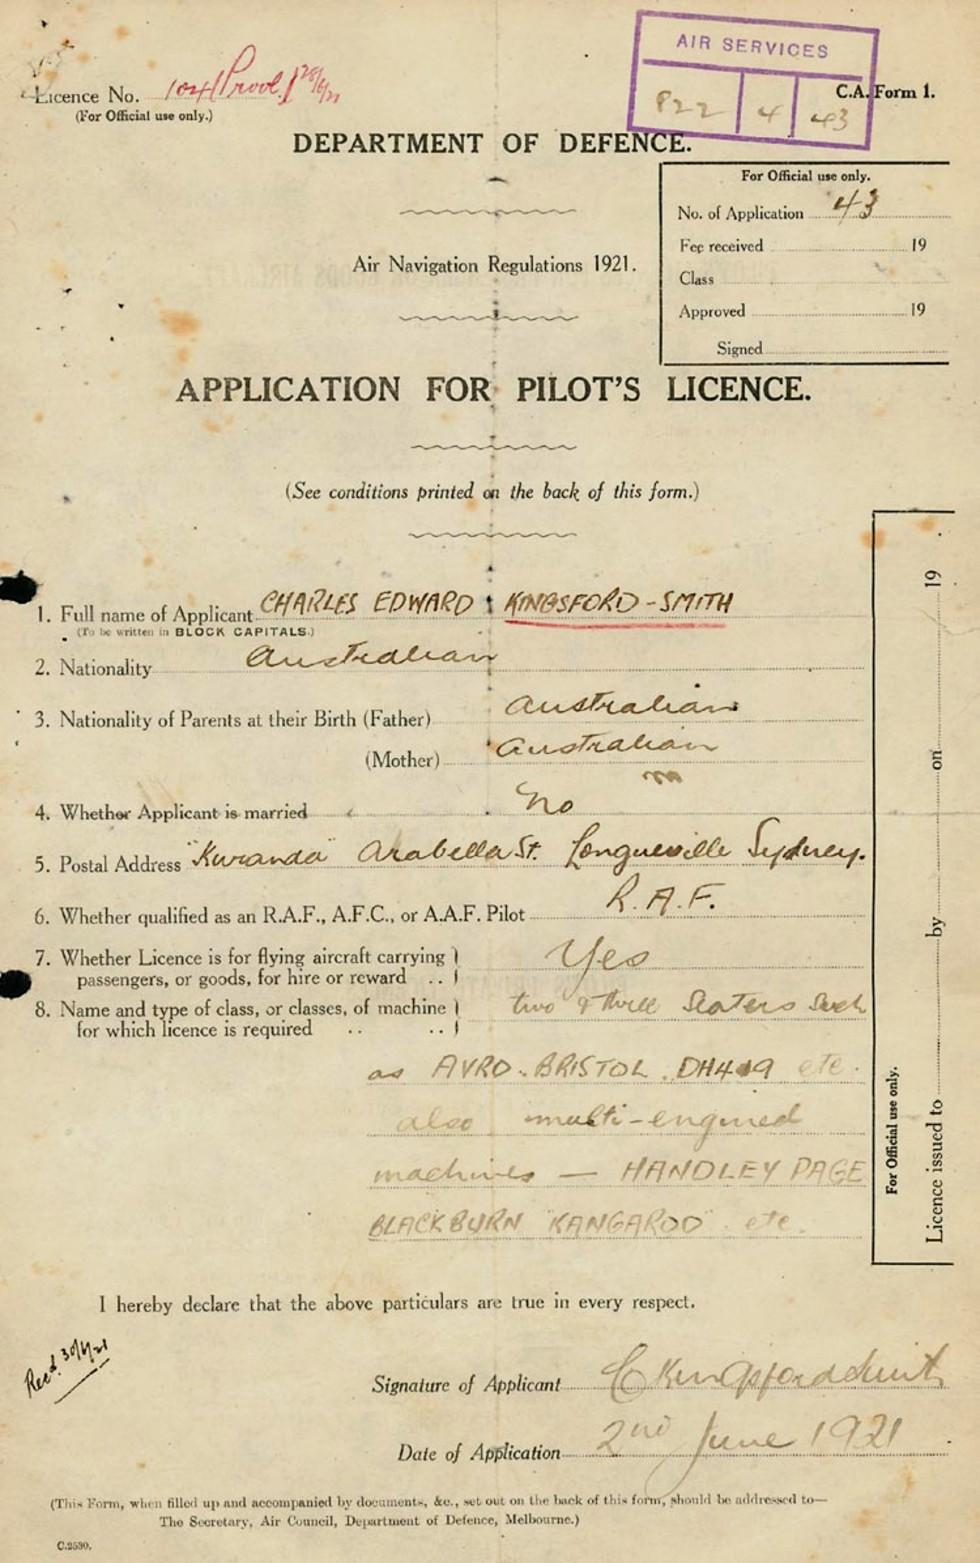 AIR SERVICES
822 4 43
Licence No. 104 Provl. 28/6/21
(For Official use only.)
C.A. Form 1.
DEPARTMENT OF DEFENCE.
For Official use only.
No. of Application 43
Fee received 19
Class
Approved 19
Signed
Air Navigation Regulations 1921.
APPLICATION FOR PILOT'S LICENCE.
(See conditions printed on the back of this form.)
1. Full name of Applicant CHARLES EDWARD KINGSFORD-SMITH
(To be written in BLOCK CAPITALS.)
2. Nationality Australian
3. Nationality of Parents at their Birth (Father) Australian
(Mother) Australian
4. Whether Applicant is married No
5. Postal Address "Kuranda" Arabella St. Longueville Sydney.
6. Whether qualified as an R.A.F., A.F.C., or A.A.F. Pilot R.A.F.
7. Whether Licence is for flying aircraft carrying
passengers, or goods, for hire or reward .. Yes
8. Name and type of class, or classes, of machine
for which licence is required .. .. two & three Seaters such
as AVRO. BRISTOL. DH4 & 9 etc.
also multi-engined
machines — HANDLEY PAGE
BLACKBURN "KANGAROO" etc.
For Official use only.
Licence issued to by on 19
I hereby declare that the above particulars are true in every respect.
Recd. 30/6/21
Signature of Applicant C Kingsford Smith
Date of Application 2nd June 1921
(This Form, when filled up and accompanied by documents, &c., set out on the back of this form, should be addressed to—
The Secretary, Air Council, Department of Defence, Melbourne.)
C.2530.